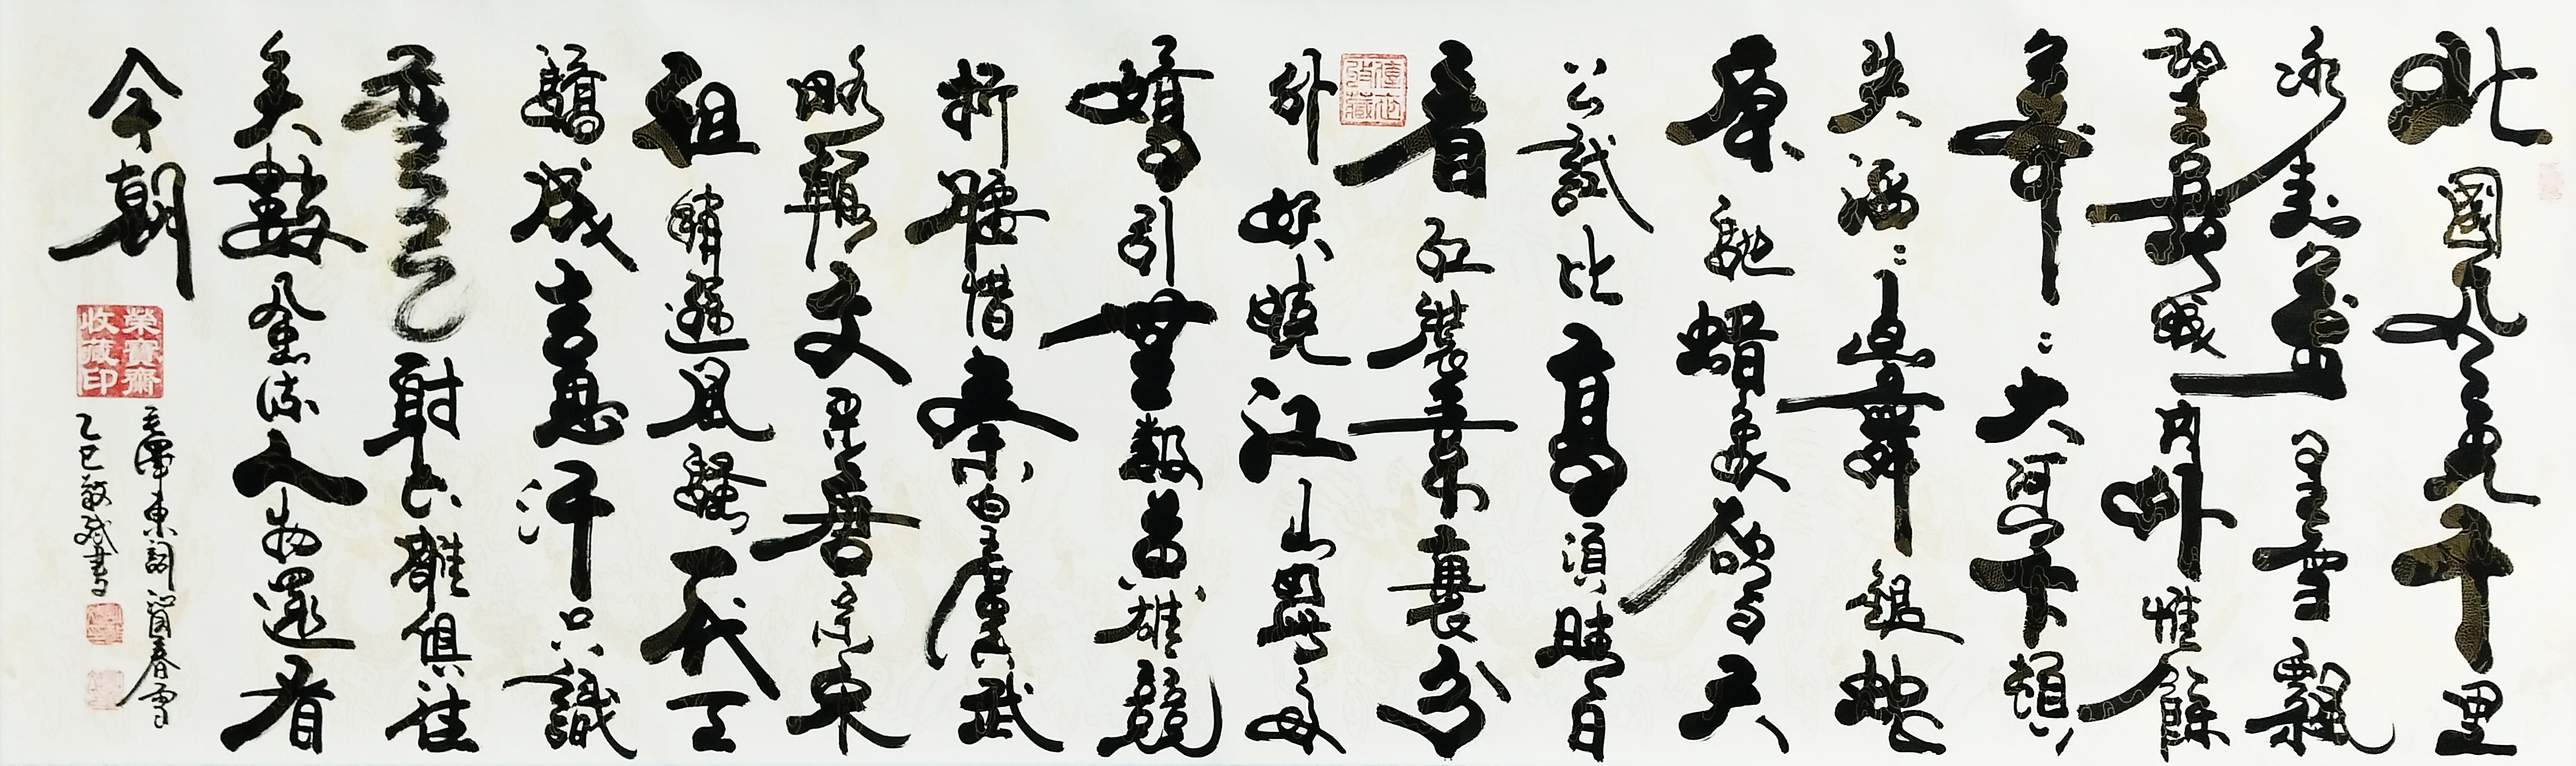 北國風光千里
冰封萬里雪飄
望長城內外惟餘
莽〻大河上下頓
失滔〻山舞銀蛇
原馳蠟象欲與天
公試比高須晴日
看紅裝素裹分
外妖嬈江山如此多
嬌引無數英雄競
折腰惜秦皇漢武
略輸文采唐宗宋
祖稍遜風騷一代天
驕成吉思汗只識
彎弓射大雕俱往
矣數風流人物還看
今朝
榮寶齋
收藏印
毛澤東詞沁園春雪
乙巳敬斌書